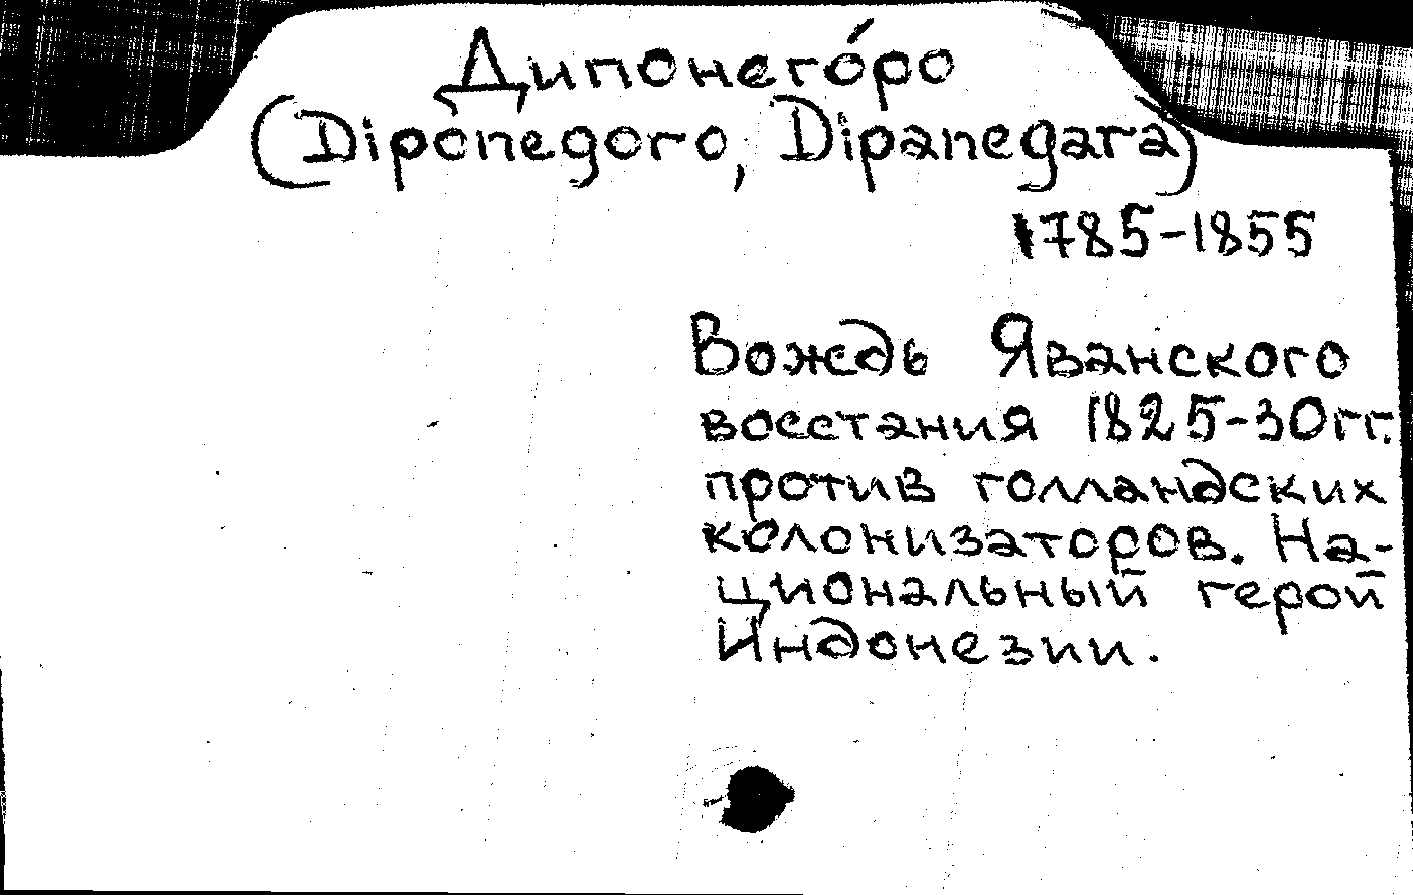 Дипонего́ро
(Diponegoro, Dipanegara)
1785-1855
Вождь Яванского
восстания 1825-30гг.
против голландских
колонизаторов. На-
циональный герой
Индонезии.